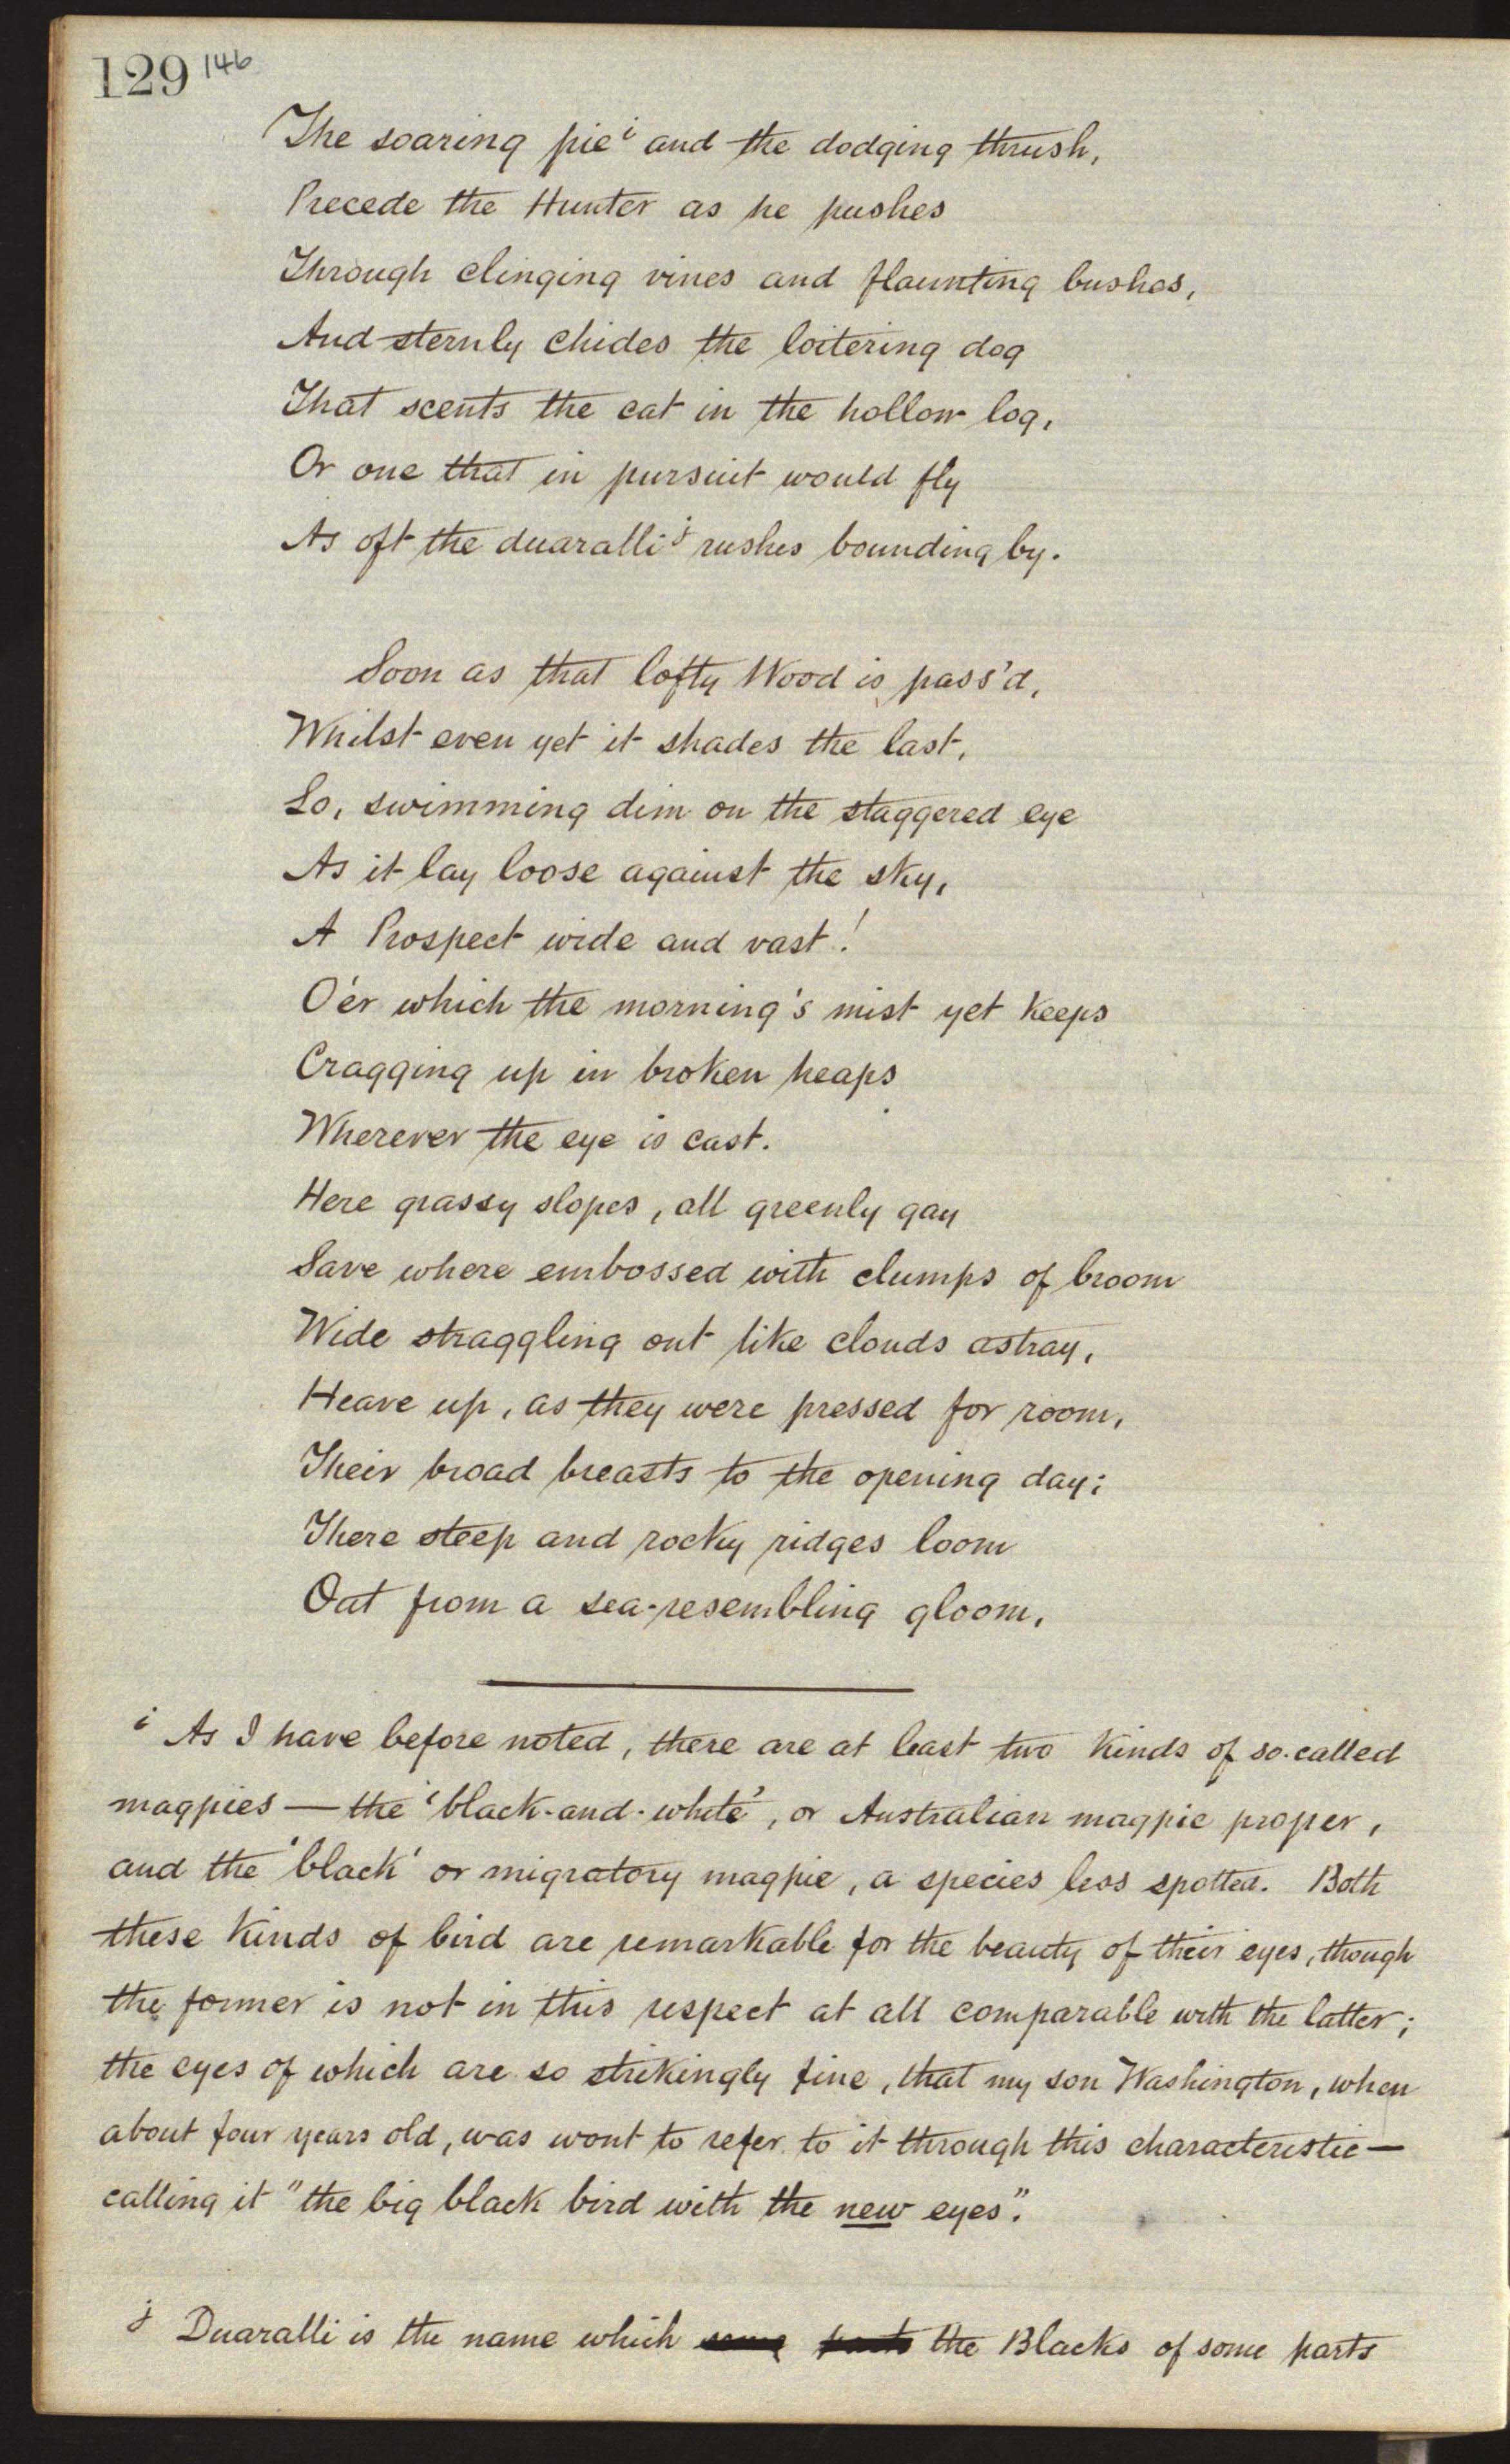 129 146
The soaring pie i and the dodging thrush,
Precede the Hunter as he pushes
Through clinging vines and flaunting bushes,
And sternly chides the loitering dog
That scents the cat in the hollow log,
Or one that in pursuit would fly
As oft the duaralli j rushes bounding by.
Soon as that lofty Wood is pass'd,
Whilst even yet it shades the last,
Lo, swimming dim on the staggered eye
As it lay loose against the sky,
A Prospect wide and vast!
O'er which the morning's mist yet keeps
Cragging up in broken heaps
Wherever the eye is cast.
Here grassy slopes, all greenly gay
Save where embossed with clumps of broom
Wide straggling out like clouds astray,
Heave up, as they were pressed for room,
Their broad breasts to the opening day;
There steep and rocky ridges loom
Out from a sea-resembling gloom,
i As I have before noted, there are at least two kinds of so-called
magpies — the 'black-and-white', or Australian magpie proper,
and the 'black' or migratory magpie, a species less spotted. Both
these kinds of bird are remarkable for the beauty of their eyes, though
the former is not in this respect at all comparable with the latter;
the eyes of which are so strikingly fine, that my son Washington, when
about four years old, was wont to refer to it through this characteristic —
calling it "the big black bird with the new eyes".
j Duaralli is the name which some parts the Blacks of some parts